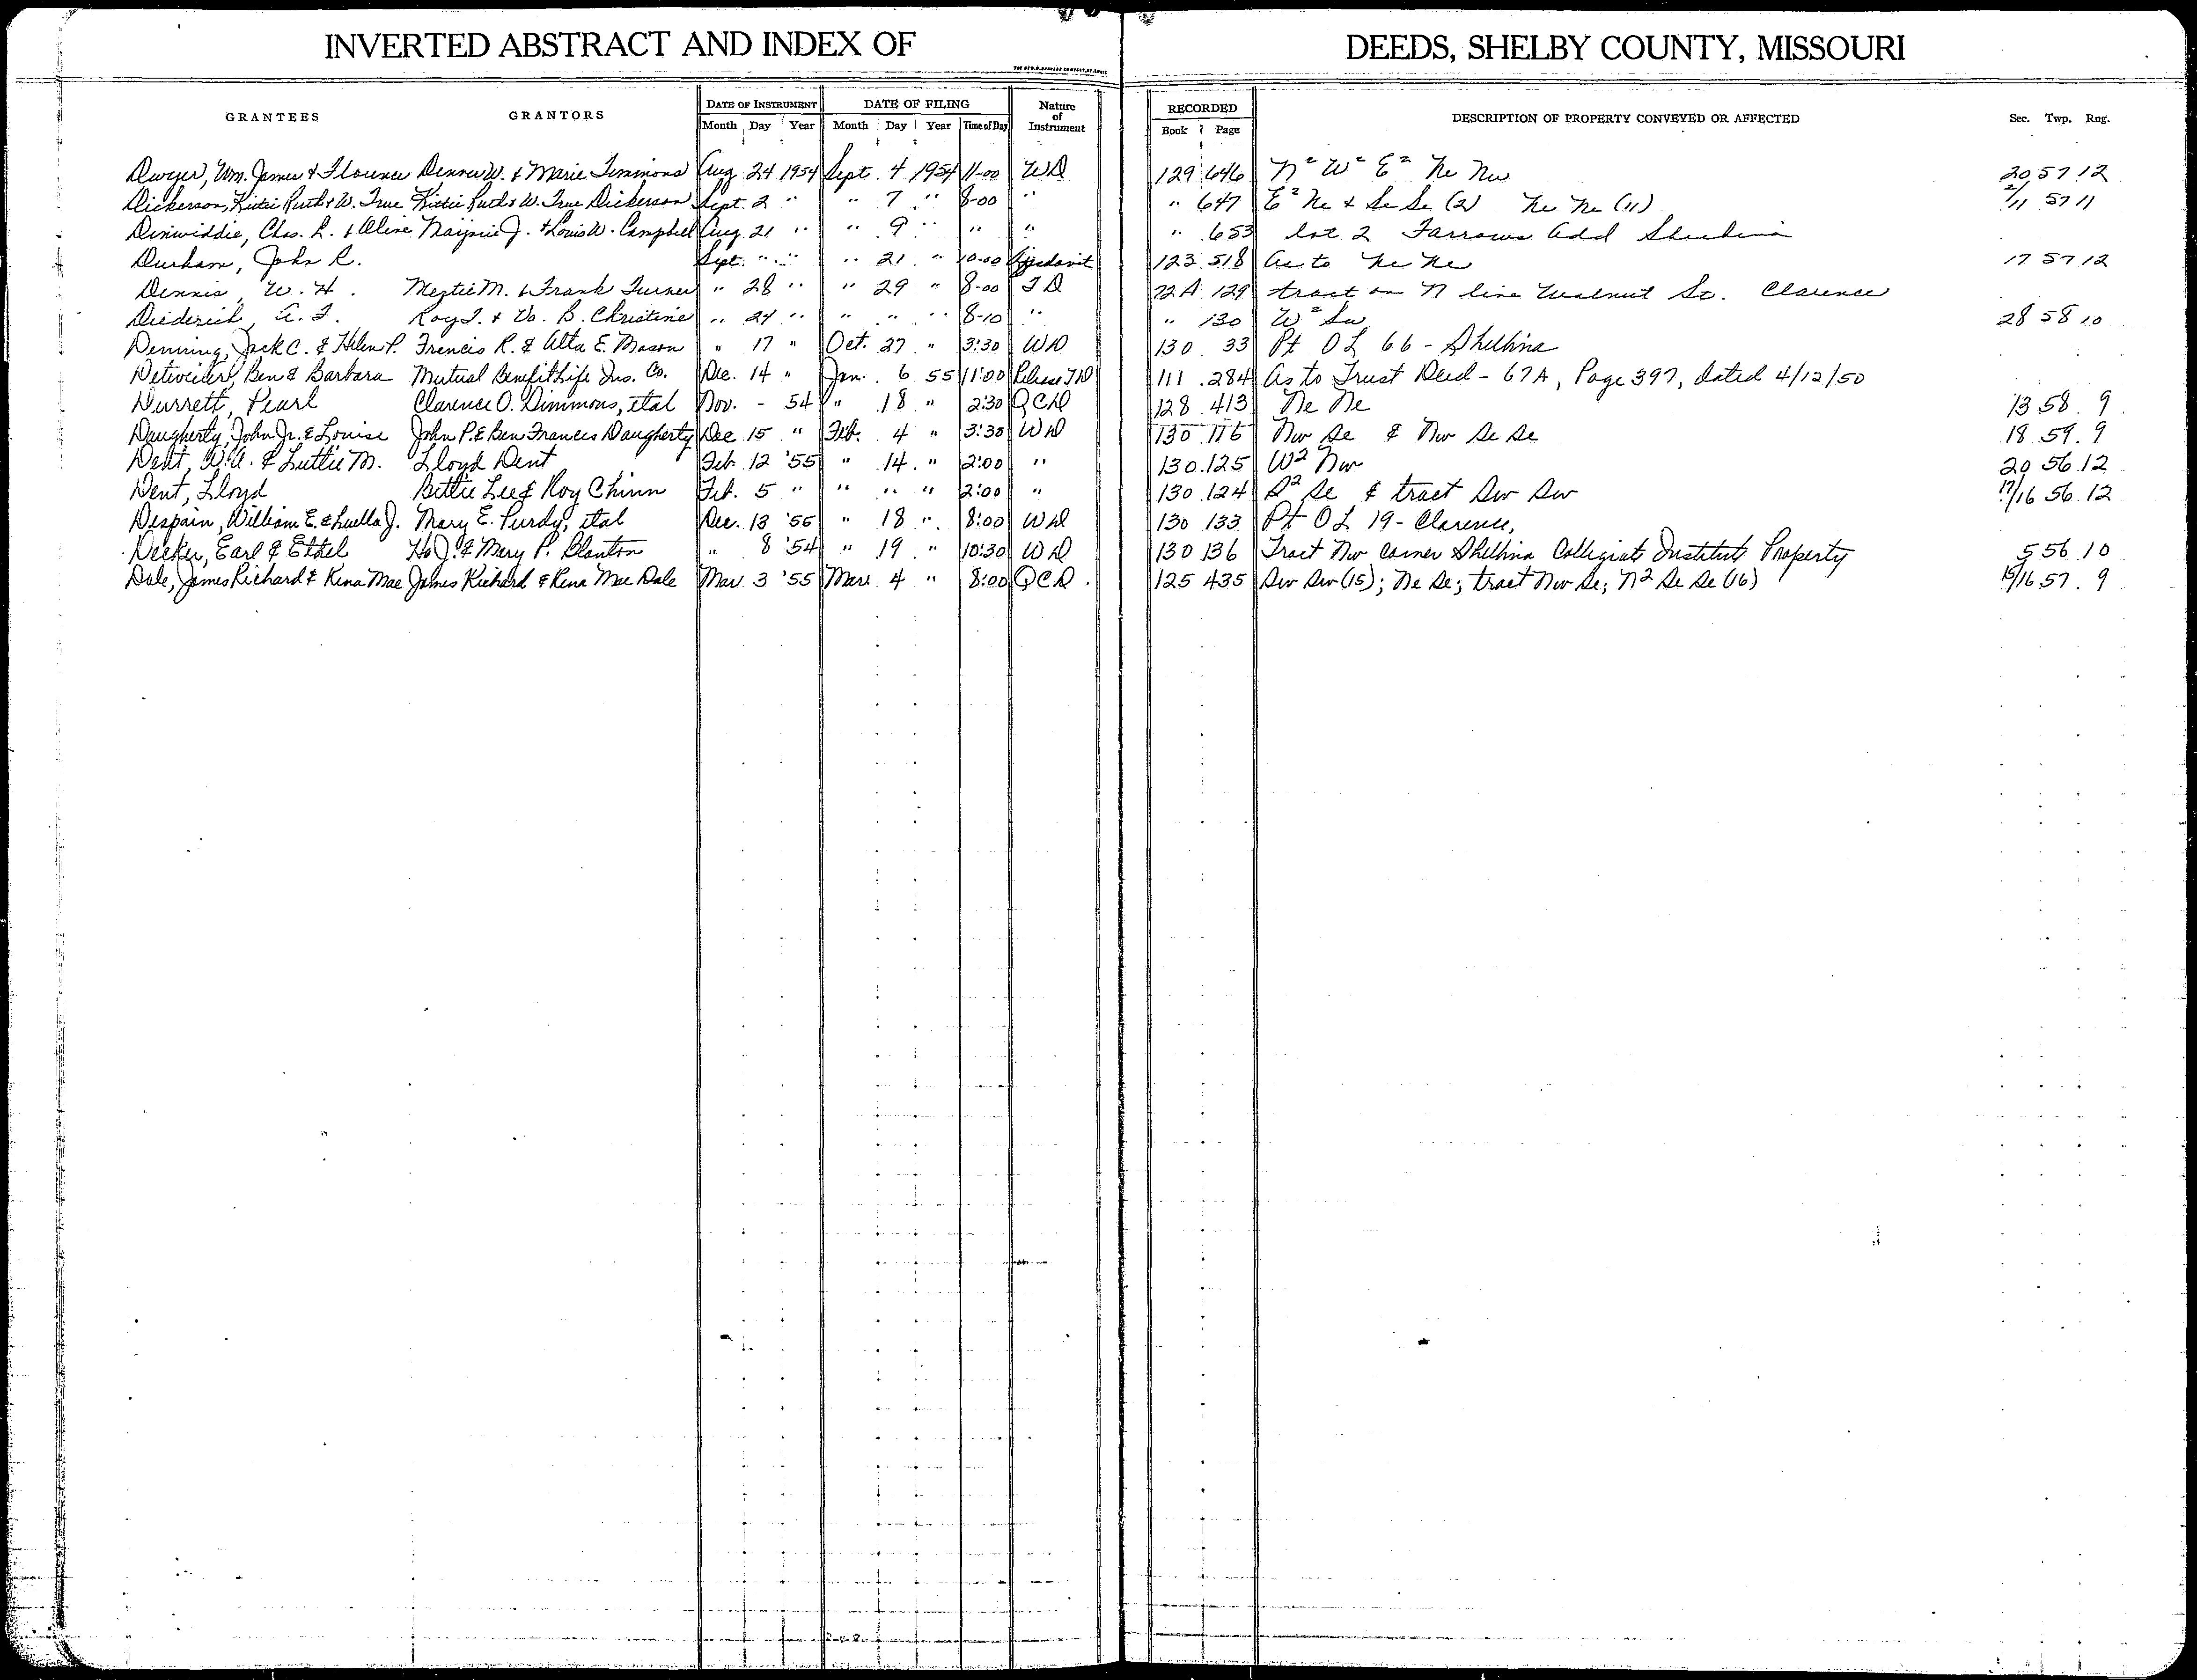 INVERTED ABSTRACT AND INDEX OF DEEDS, SHELBY COUNTY, MISSOURI
GRANTEES GRANTORS DATE OF INSTRUMENT DATE OF FILING Nature of Instrument RECORDED DESCRIPTION OF PROPERTY CONVEYED OR AFFECTED Sec. Twp. Rng.
Month Day Year Month Day Year Time of Day Book Page
Dwyer, Wm. James & Florence Denver W. & Marie Simmons Aug 24 1954 Sept. 4 1954 11-00 WD 129 646 N² W² E² Ne Nw 20 57 12
Dickerson, Kittie Ruth & W. True Kittie Ruth & W. True Dickerson Sept. 2 " " 7 " 8-00 " " 647 E² Ne & Se Se (2) Ne Ne (11) 2/11 57 11
Dinwiddie, Chas. L. & Aline Marjorie J. & Louis W. Campbell Aug. 21 " " 9 " " " " 653 lot 2 Farrows Add Shelbina
Durham, John R. Sept. " " " 21 " 10-00 Affidavit 123 518 As to Ne Ne 17 57 12
Dennis, W. H. M. & Frank Turner " 28 " " 29 " 8-00 TD 72A 129 tract on N line Walnut St. Clarence
Diederich, A. F. Roy T. & Va. B. Christine " 24 " " " " 8-10 " " 130 W² Sw 28 58 10
Denning, Jack C. & Helen P. Francis R. & Alta E. Mason " 17 " Oct. 27 " 3:30 WD 130 33 Pt OL 66 - Shelbina
Detweiler, Ben & Barbara Mutual Benefit Life Ins. Co. Dec. 14 " Jan. 6 55 11:00 Release TD 111 284 As to Trust Deed - 67A, Page 397, dated 4/12/50
Durrett, Pearl Clarence O. Dimmons, etal Nov. - 54 " 18 " 2:30 QCD 128 413 Ne Ne 13 58 9
Daugherty, John Jr. & Louise John P. & Ben Francis Daugherty Dec 15 " Feb. 4 " 3:30 WD 130 116 Nw Se & Nw Se Se 18 59 9
Dent, W.A. & Luttie M. Lloyd Dent Feb. 12 '55 " 14 " 2:00 " 130 125 W² Nw 20 56 12
Dent, Lloyd Bittie Lee & Roy Chinn Feb. 5 " " " " 2:00 " 130 124 S² Se & tract Sw Sw 17/16 56 12
Despain, William E. & Luella J. Mary E. Purdy, etal Dec. 13 '55 " 18 " 8:00 WD 130 133 Pt OL 19 - Clarence,
Decker, Earl & Ethel H. J. & Mary P. Blanton " 8 '54 " 19 " 10:30 WD 130 136 Tract Nw Corner Shelbina Collegiate Institute Property 5 56 10
Dale, James Richard & Rena Mae James Richard & Rena Mae Dale Mar. 3 '55 Mar. 4 " 8:00 QCD 125 435 Sw Sw (15); Ne Se; tract Nw Se; N² Se Se (16) 15/16 57 9